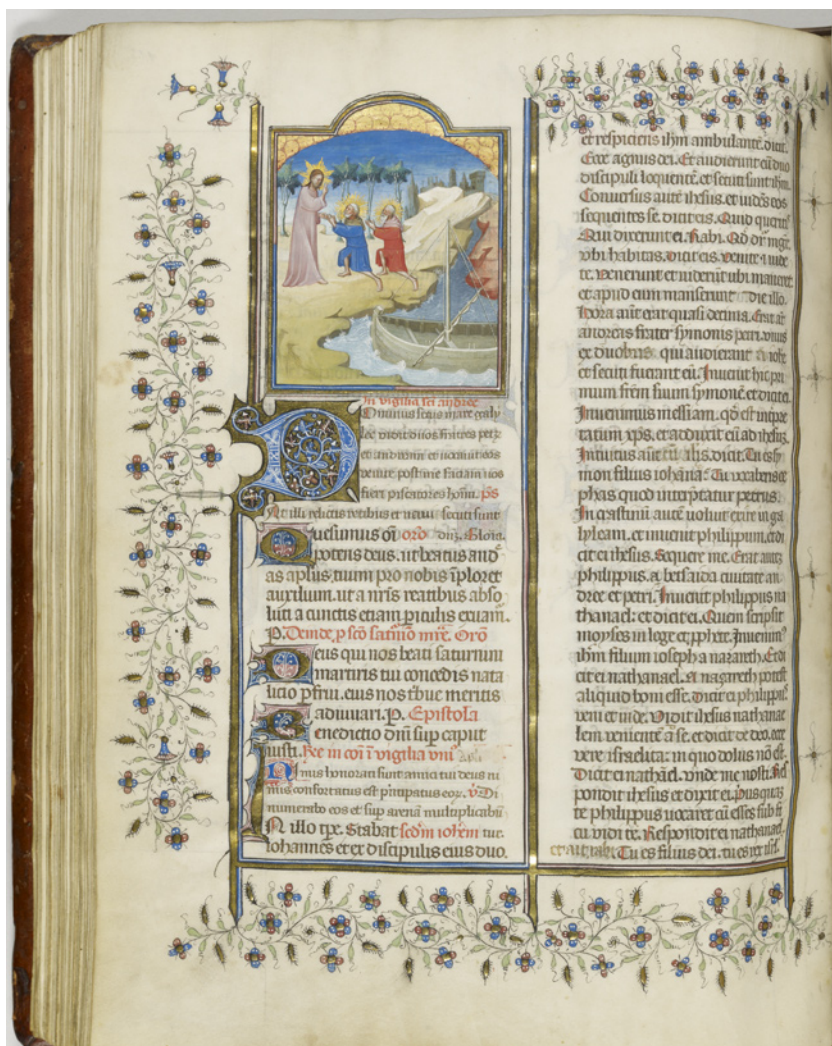 In vigilia sci andree
Dominus secus mare galy
lee vidit duos fratres petꝝ
et andream et vocavit eos
venite post me faciam vos
fieri piscatores hominū. ps
At illi relictis retibus et navi secuti sunt
dn̄z. Gloīa.
Quesumus om̄ oro
potens deus. ut beatus and
as ap̄lus tuum pro nobis īploret
auxilium. ut a n̄ris reatibus abso
luti a cunctis etiam p̄iculis eruam᷑.
P. Deinde p̱ scō saturnīo mr̄e. Orō
Deus qui nos beati saturnini
martiris tui concedis nata
licio p̱frui. eius nos t̄bue meritis
adiuvari. P. Epistola
Benedictio dn̄i sup̱ caput
iusti. Rc̄ in cōi ī vigilia uni᷒ ap̄li
Nimis honorati sunt amici tui deus ni
mis confortatus est p̄ncipatus eoꝝ. V̄ Di
numerabo eos et sup̱ arenā multiplicabūt᷑
IN illo tp̄e. Stabat scd̄m ioh̄em
iohannes et ex discipulis eius duo.
et respiciens ih̄m ambulantē. dicit.
Ecce agnus dei. Et audierunt eū duo
discipuli loquentē. et secuti sunt ih̄m.
Conversus autē ih̄esus. et vidēs eos
sequentes se. dicit eis. Quid querit᷒
Qui dixerunt ei. Rabi. Qd̄ dr̄ mgr̄.
ubi habitas. Dicit eis. Venite ⁊ vide
te. Venerunt et viderūt ubi maneret
et apud eum manserunt die illo.
Hora aūt erat quasi decima. Erat aūt
andreas frater symonis petri. unus
ex duobus qui audierant a ioh̄e
et secuti fuerant eū. Invenit hic pri
mum fr̄em suum symonē et dicit ei.
Invenimus messiam. qd̄ est īnterp̄
tatum xp̄s. et adduxit eū ad ih̄esuꝫ.
Intuitus aūtē eū ih̄s. dixit. Tu es sy
mon filius iohāna. Tu vocaberis ce
phas quod interp̄tatur petrus.
In crastinū autē voluit exire in ga
lyleam. et invenit philippum. et di
cit ei ih̄esus. Sequere me. Erat autꝫ
philippus. a betsaida civitate an
dree et petri. Invenit philippus na
thanael: et dicit ei. Quem scripsit
moyses in lege et p̱phete. Invenim᷒
ih̄m filium ioseph a nazareth. Et di
cit ei nathanael. A nazareth potest
aliquid boni esse. Dicit ei philipp᷒.
veni et vide. Vidit ih̄esus nathanae
lem venientē a se. et dicit de eo. ecce
vere israelita: in quo dolus nō est.
Dicit ei nathāel. Unde me nosti. Res
pondit ih̄esus et dixit ei. P̄usquā
te philippus vocaret cū esses sub fi
cu vidi te. Respondit ei nathanael.
et ait rabi. Tu es filius dei. tu es rex isr̄l.